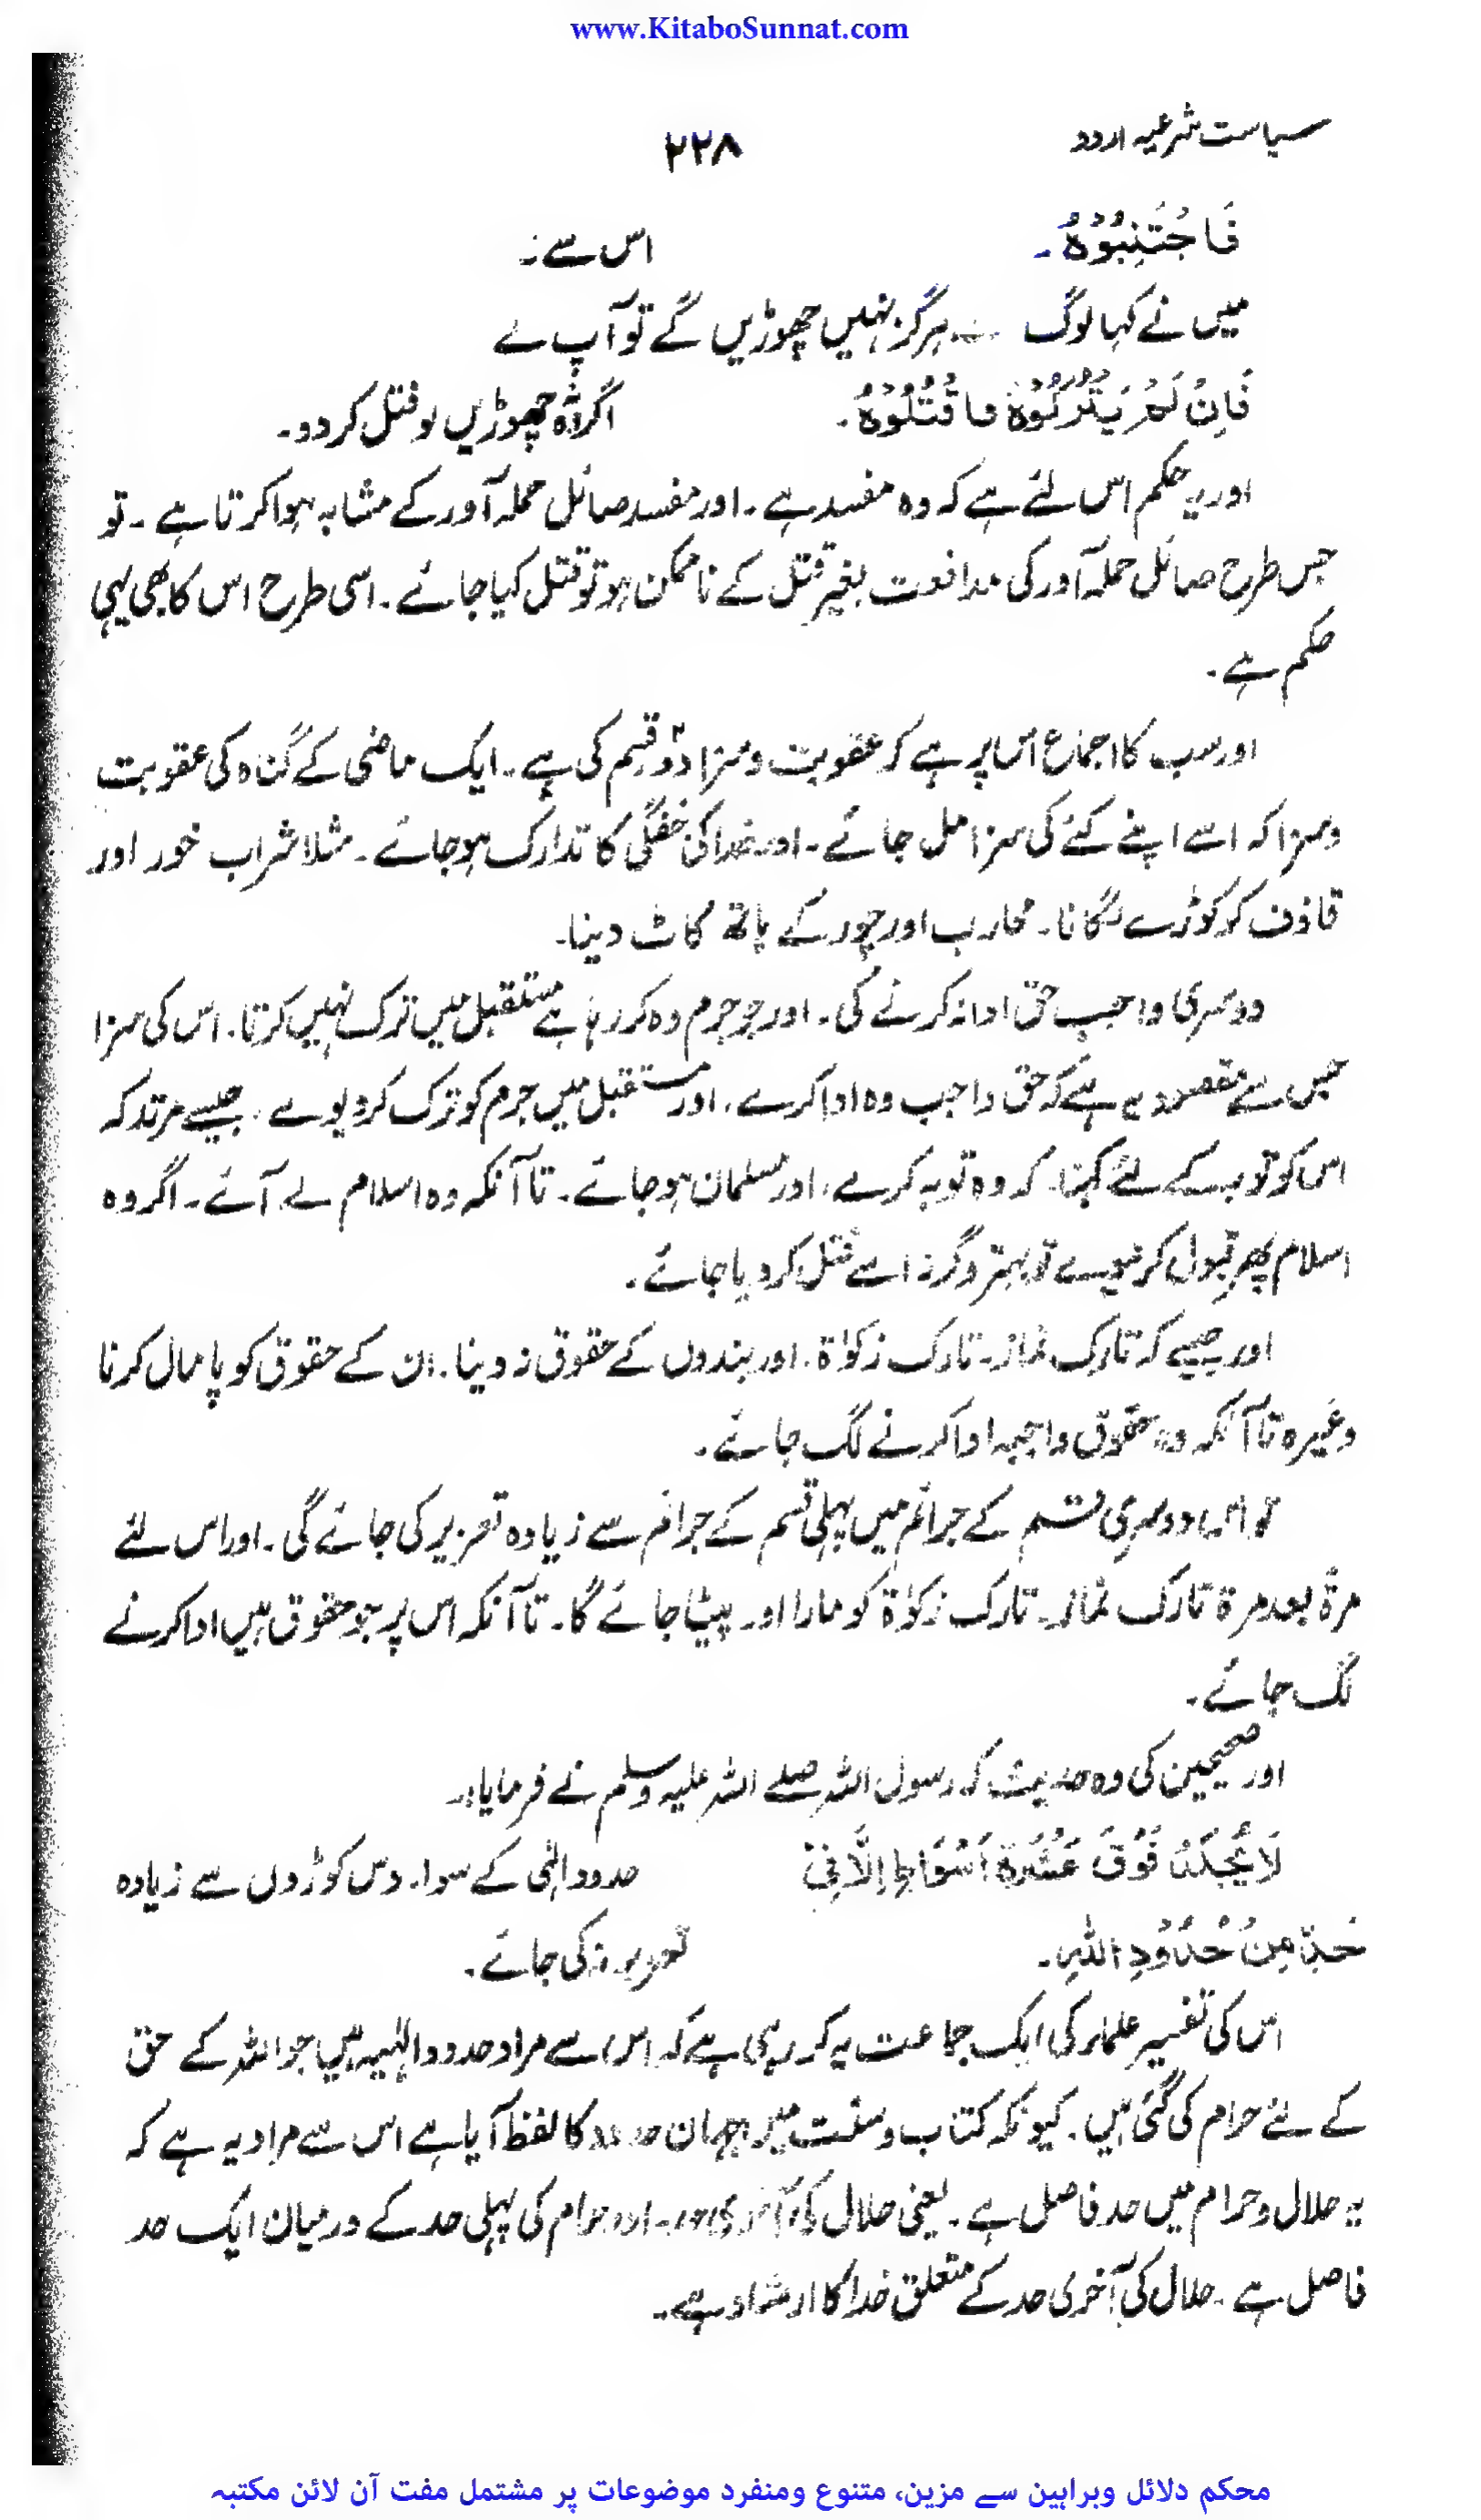 www.KitaboSunnat.com
سیاست شرعیہ اردو
۲۲۸
فَاجْتَنِبُوْهُ۔ اس سے۔
میں نے کہا لوگ ہرگز نہیں چھوڑیں گے تو آپ نے
فَاِنْ لَمْ يَتْرُكُوْهُ فَاقْتُلُوْهُ۔ اگر نہ چھوڑیں تو قتل کر دو۔
اور یہ حکم اس لئے ہے کہ وہ مفسد ہے۔ اور مفسد صائل حملہ آور کے مشابہ ہوا کرتا ہے۔ تو
جس طرح صائل حملہ آور کی مدافعت بغیر قتل کے ناممکن ہو تو قتل کیا جائے۔ اسی طرح اس کا بھی یہی
حکم ہے۔
اور سب کا اجماع اس پر ہے کہ عقوبت و سزا دو قسم کی ہے۔ ایک ماضی کے گناہ کی عقوبت
و سزا کہ اسے اپنے کئے کی سزا مل جائے۔ اور خدا کی خفگی کا تدارک ہو جائے۔ مثلا شراب خور اور
قاذف کو کوڑے لگانا۔ محارب اور چور کے ہاتھ کاٹ دینا۔
دوسری واجب حق ادا نہ کرنے کی۔ اور جو جرم وہ کر رہا ہے مستقبل میں ترک نہیں کرتا۔ اس کی سزا
جس سے مقصود یہ ہے کہ حق واجب وہ ادا کرے، اور مستقبل میں جرم کو ترک کر دیوے، جیسے مرتد کہ
اس کو توبہ کے لئے کہنا۔ کہ وہ توبہ کرے، اور مسلمان ہو جائے۔ تا آنکہ وہ اسلام لے آئے۔ اگر وہ
اسلام پھر قبول کر لیوے تو بہتر وگرنہ اسے قتل کر دیا جائے۔
اور جیسے کہ تارک نماز۔ تارک زکوٰۃ، اور بندوں کے حقوق نہ دینا۔ ان کے حقوق کو پامال کرنا
وغیرہ تا آنکہ وہ حقوق واجبہ ادا کرنے لگ جائے۔
تو اس دوسری قسم کے جرائم میں پہلی قسم کے جرائم سے زیادہ تعزیر کی جائے گی۔ اور اس لئے
مرۃ بعد مرۃ تارک نماز۔ تارک زکوٰۃ کو مارا اور پیٹا جائے گا۔ تا آنکہ اس پر جو حقوق ہیں ادا کرنے
لگ جائے۔
اور صحیحین کی وہ حدیث کہ رسول اللہ صلے اللہ علیہ وسلم نے فرمایا:۔
لَا يُجْلَدُ فَوْقَ عَشَرَةِ اَسْوَاطٍ اِلَّا فِيْ حدود الٰہی کے سوا، دس کوڑوں سے زیادہ
حَدٍّ مِنْ حُدُوْدِ اللّٰهِ۔ تعزیر نہ کی جائے۔
اس کی تفسیر علماء کی ایک جماعت یہ کر رہی ہے کہ اس سے مراد حدود الٰہیہ ہیں جو اللہ کے حق
کے لئے حرام کی گئی ہیں۔ کیونکہ کتاب و سنت میں جہاں حدود کا لفظ آیا ہے اس سے مراد یہ ہے کہ
یہ حلال و حرام میں حد فاصل ہے۔ یعنی حلال کی آخری حد۔ اور حرام کی پہلی حد کے درمیان ایک حد
فاصل ہے۔ حلال کی آخری حد کے متعلق خدا کا ارشاد ہے۔
محکم دلائل وبراہین سے مزین، متنوع ومنفرد موضوعات پر مشتمل مفت آن لائن مکتبہ